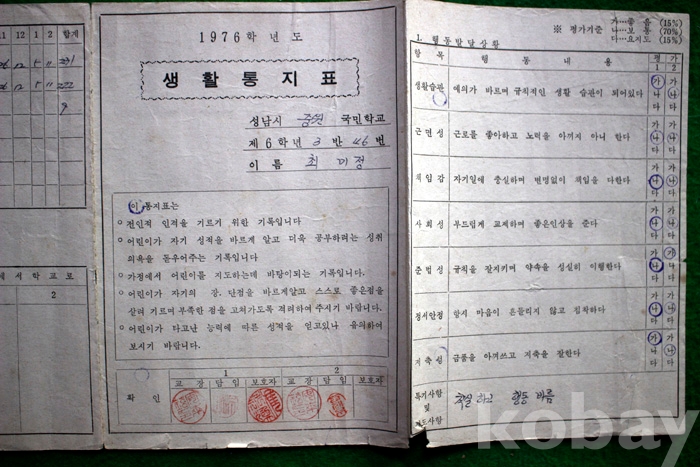 11 12 1 2 합계
에서 학교로
2
1976학년도
생활통지표
성남시 중원 국민학교
제 6 학년 3 반 46 번
이 름 최 미정
이 통지표는
○ 전인적 인격을 기르기 위한 기록입니다
○ 어린이가 자기 성적을 바르게 알고 더욱 공부하려는 성취
의욕을 돋우어주는 기록입니다
○ 가정에서 어린이를 지도하는데 바탕이되는 기록입니다.
○ 어린이가 자기의 장, 단점을 바르게알고 스스로 좋은점을
살려 기르며 부족한 점을 고쳐가도록 격려하여 주시기 바랍니다.
○ 어린이가 타고난 능력에 따른 성적을 얻고있나 유의하여
보시기 바랍니다.
확 인
1 2
교 장 담 임 보호자 교 장 담 임 보호자
※ 평가기준
가…좋 음 (15%)
나…보 통 (70%)
다…요지도 (15%)
1. 행동발달상황
항 목 행 동 내 용 평 가
1 2
생활습관 예의가 바르며 규칙적인 생활 습관이 되어있다 가 나 다 가 나 다
근 면 성 근로를 좋아하고 노력을 아끼지 아니 한다 가 나 다 가 나 다
책 임 감 자기일에 충실하며 변명없이 책임을 다한다 가 나 다 가 나 다
사 회 성 부드럽게 교제하며 좋은인상을 준다 가 나 다 가 나 다
준 법 성 규칙을 잘지키며 약속을 성실히 이행한다 가 나 다 가 나 다
정서안정 항시 마음이 흔들리지 않고 침착하다 가 나 다 가 나 다
저 축 성 금품을 아껴쓰고 저축을 잘한다 가 나 다 가 나 다
특기사항
및
지도사항
착실 하고 행동 바름
kobay